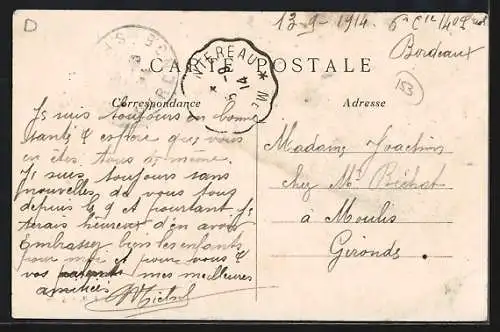 D
13-9-1914. 6e Cie
Bordeaux
153
CARTE POSTALE
Correspondance
Adresse
Je suis toujours en bonne
santé & espère que vous
en êtes tous de même.
Je suis toujours sans
nouvelles de vous tous
depuis le 9 et pourtant je
serais heureux d'en avoir
Embrassez bien les enfants
pour moi et pour vous &
vos mes meilleures
amitiés
Madame Joachim
chez Mr Béchat
à Moulis
Gironde